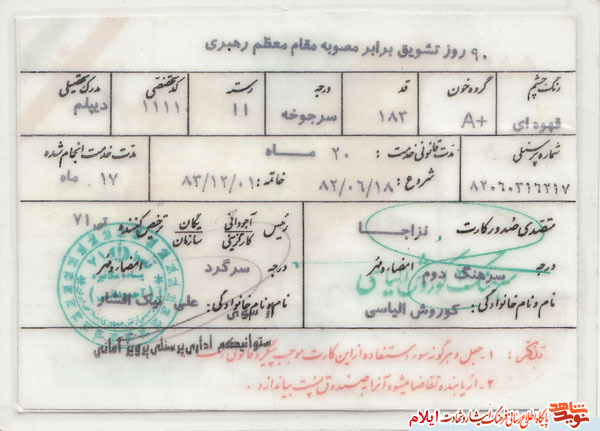 ۹۰ روز تشویق برابر مصوبه مقام معظم رهبری
رنگ چشم گروه خون قد درجه رسته کد تخصصی مدرک تحصیلی
قهوه ای A+ ۱۸۳ سرجوخه ۱۱ ۱۱۱۱ دیپلم
شماره پرسنلی مدت قانونی خدمت : ۲۰ ماه مدت خدمت انجام شده
۸۲۰۶۰۳۱۶۲۱۷ شروع : ۸۲/۰۶/۱۸ خاتمه : ۸۳/۱۲/۰۱ ۱۷ ماه
متصدی صدور کارت نزاجا رئیس آجودانی کارگزینی یگان سازمان ترخیص کننده تی ۷۱
درجه سرهنگ دوم امضاء و مهر درجه سرگرد امضاء و مهر
نام و نام خانوادگی : کوروش الیاسی نام و نام خانوادگی : علی نیک افشار
تذکر : ۱ـ جعل و هرگونه سوء استفاده از این کارت موجب پیگرد قانونی است
۲ـ از یابنده تقاضا میشود آنرا به صندوق پست بیاندازد .
ستوانیکم اداری پرسنلی پرویز امانی
نوید شاهد
پایگاه اطلاع رسانی فرهنگ ایثار و شهادت ایلام